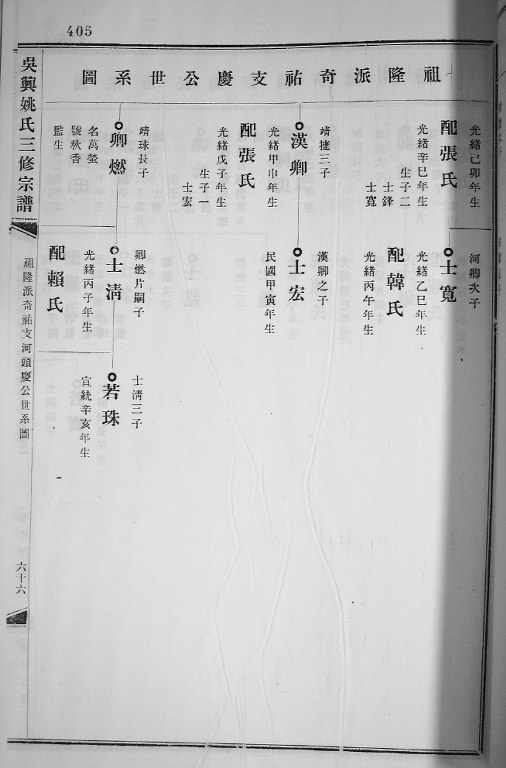 405
祖隆派奇祐支慶公世系圖
光緒己卯年生
配張氏
光緒辛巳年生
生子二
士鋒
士寬
靖㨗三子
漢卿
光緒甲申年生
配張氏
光緒戊子年生
生子一
士宏
靖球長子
卿燃
名萬螢
號秋香
監生
河卿次子
士寬
光緒乙巳年生
配韓氏
光緒丙午年生
漢卿之子
士宏
民國甲寅年生
卿燃片嗣子
士清
光緒丙子年生
配賴氏
士清三子
若珠
宣統辛亥年生
吳興姚氏三修宗譜
祖隆派奇祐支河頭慶公世系圖
六十六